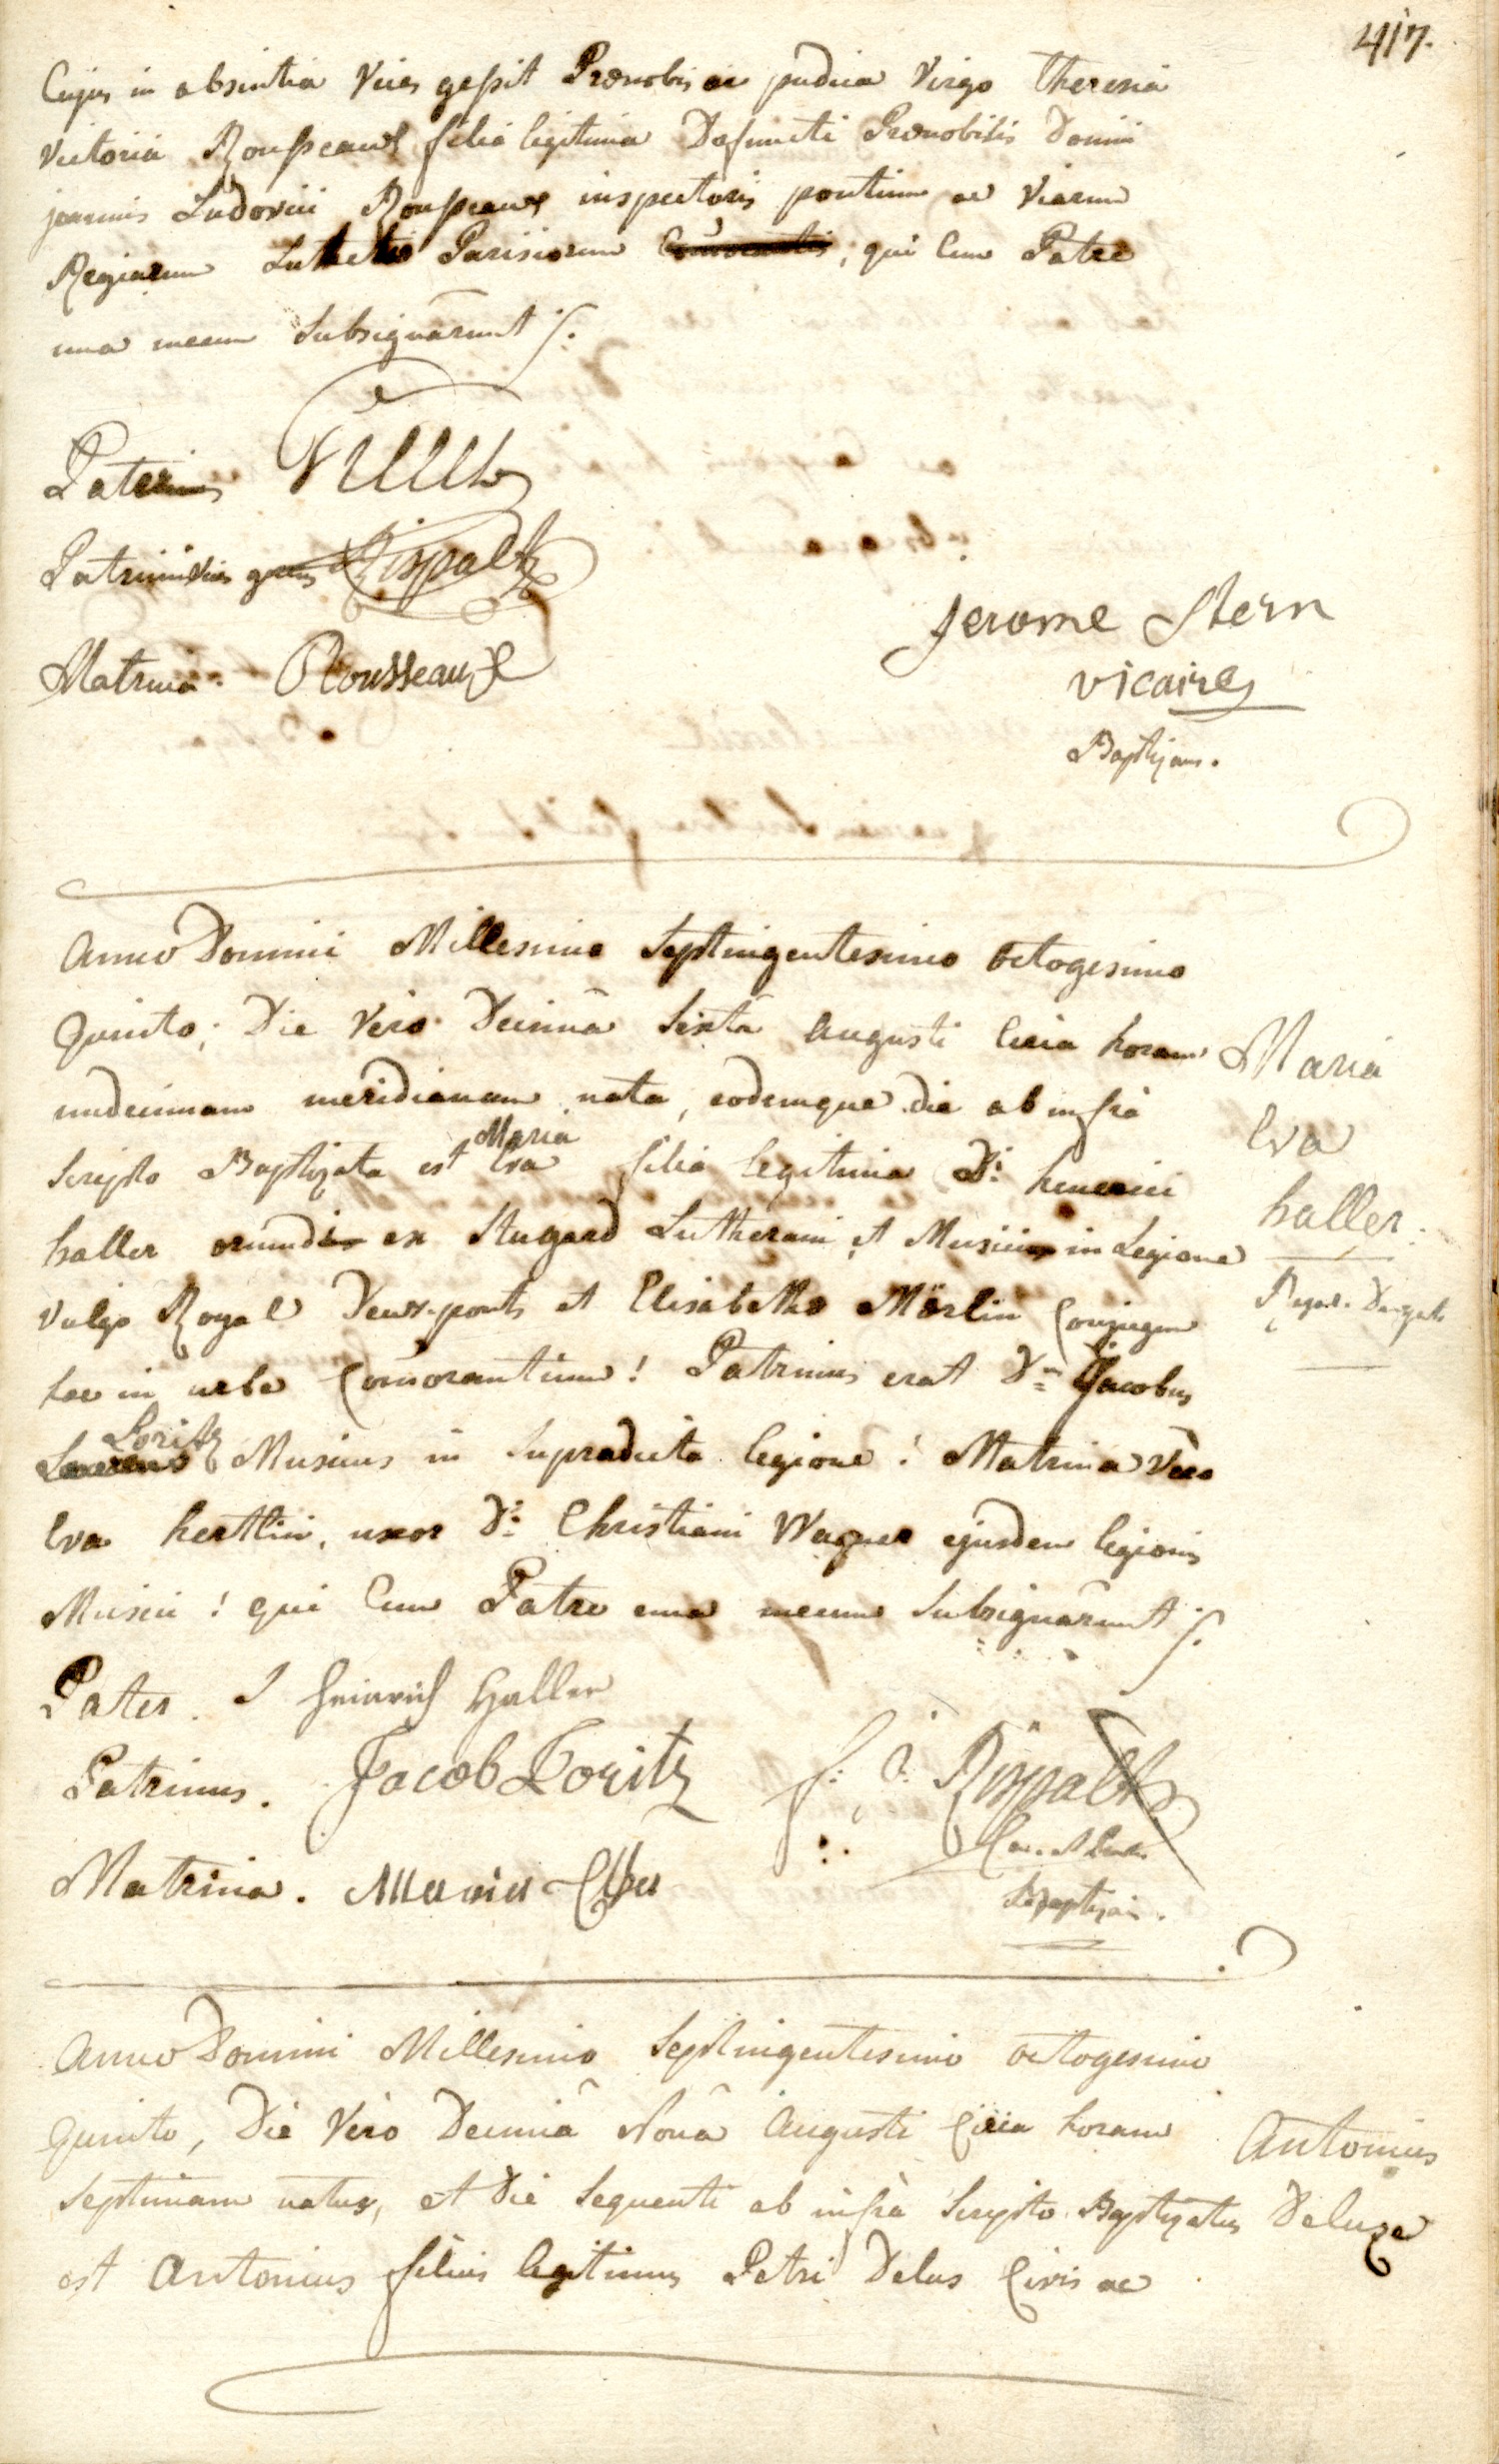 417.
Cujus in absentia Vices gessit Prænobis ac pudica Virgo Theresia
Victoria Rousseaux filia legitima Defuncti Prænobilis Domini
joannis Ludovici Rousseaux inspectoris pontium ac Viarum
Regiarum Lutetiæ Parisiorum ; qui Cum Patre
una mecum Subsignârunt
Pater
Patrini Vices gerens Rispalts
Matrina. Rousseaux
Jerome Stern
vicaire
Baptizans.
Anno Domini Millesimo Septingentesimo octogesimo
Quinto; Die Vero Decimâ Sextâ Augusti Circa horam
undecimam meridianam nata, eodemque die ab infrà
Scripto Baptizata est Maria Eva filia legitima Di. henerici
haller oriundi ex Stugard Lutherani et Musici in Legione
Vulgo Royal Deux-ponts et Elisabetha Mörlin Conjugum
hac in urbe Comorantium! Patrinus erat Dnus Jacobus
Loritz Musicus in Supradicta legione! Matrina Vero
Eva herttlin, uxor Di. Christiani Wagner ejusdem legionis
Musici! qui Cum Patre una mecum Subsignârunt
Maria
Eva
haller.
Pater. J Heinrich Haller
Patrinus. Jacob Loritz
Matrina.
Rispalts
Baptizans.
Anno Domini Millesimo Septingentesimo octogesimo
Quinto, Die Vero Decimâ Nonâ Augusti Circa horam
Septimam natus, et Die Sequenti ab infrà Scripto Baptizatus
est Antonius filius legitimus Petri Delus Civis ac
Antonius
Deluze